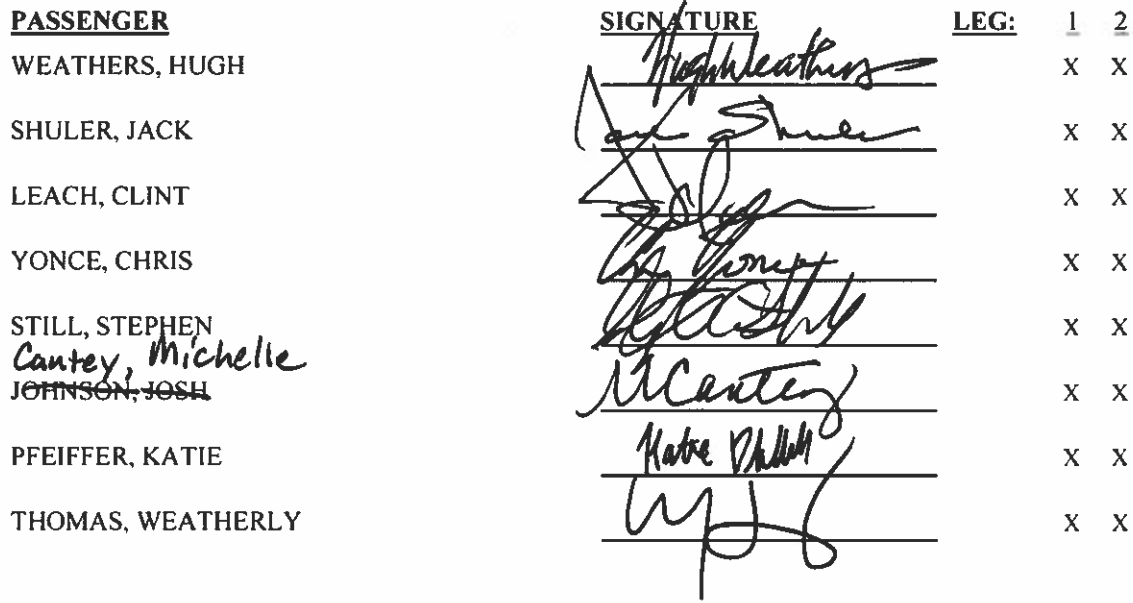 PASSENGER SIGNATURE LEG: 1 2
WEATHERS, HUGH Hugh Weathers X X
SHULER, JACK Shuler X X
LEACH, CLINT X X
YONCE, CHRIS Yonce X X
STILL, STEPHEN X X
Cantey, Michelle
JOHNSON, JOSH MCantey X X
PFEIFFER, KATIE Katie X X
THOMAS, WEATHERLY X X